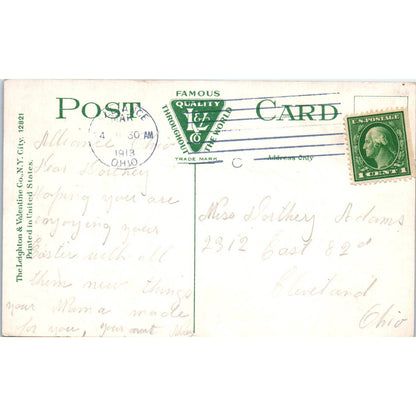 POST CARD
FAMOUS
QUALITY
THROUGHOUT THE WORLD
L&V Co
TRADE MARK
Address Only
ANCE
MAR
4 30 AM
1913
OHIO
U.S. POSTAGE
1 CENT 1
The Leighton & Valentine Co., N.Y. City. 12821
Printed in United States.
Alliance
Dear Dorthey
Hoping you are
enjoying your
Easter with all
them new things
your Mama made
for you, your aunt
Miss Dorthey Adams
2312 East 82nd
Cleveland
Ohio